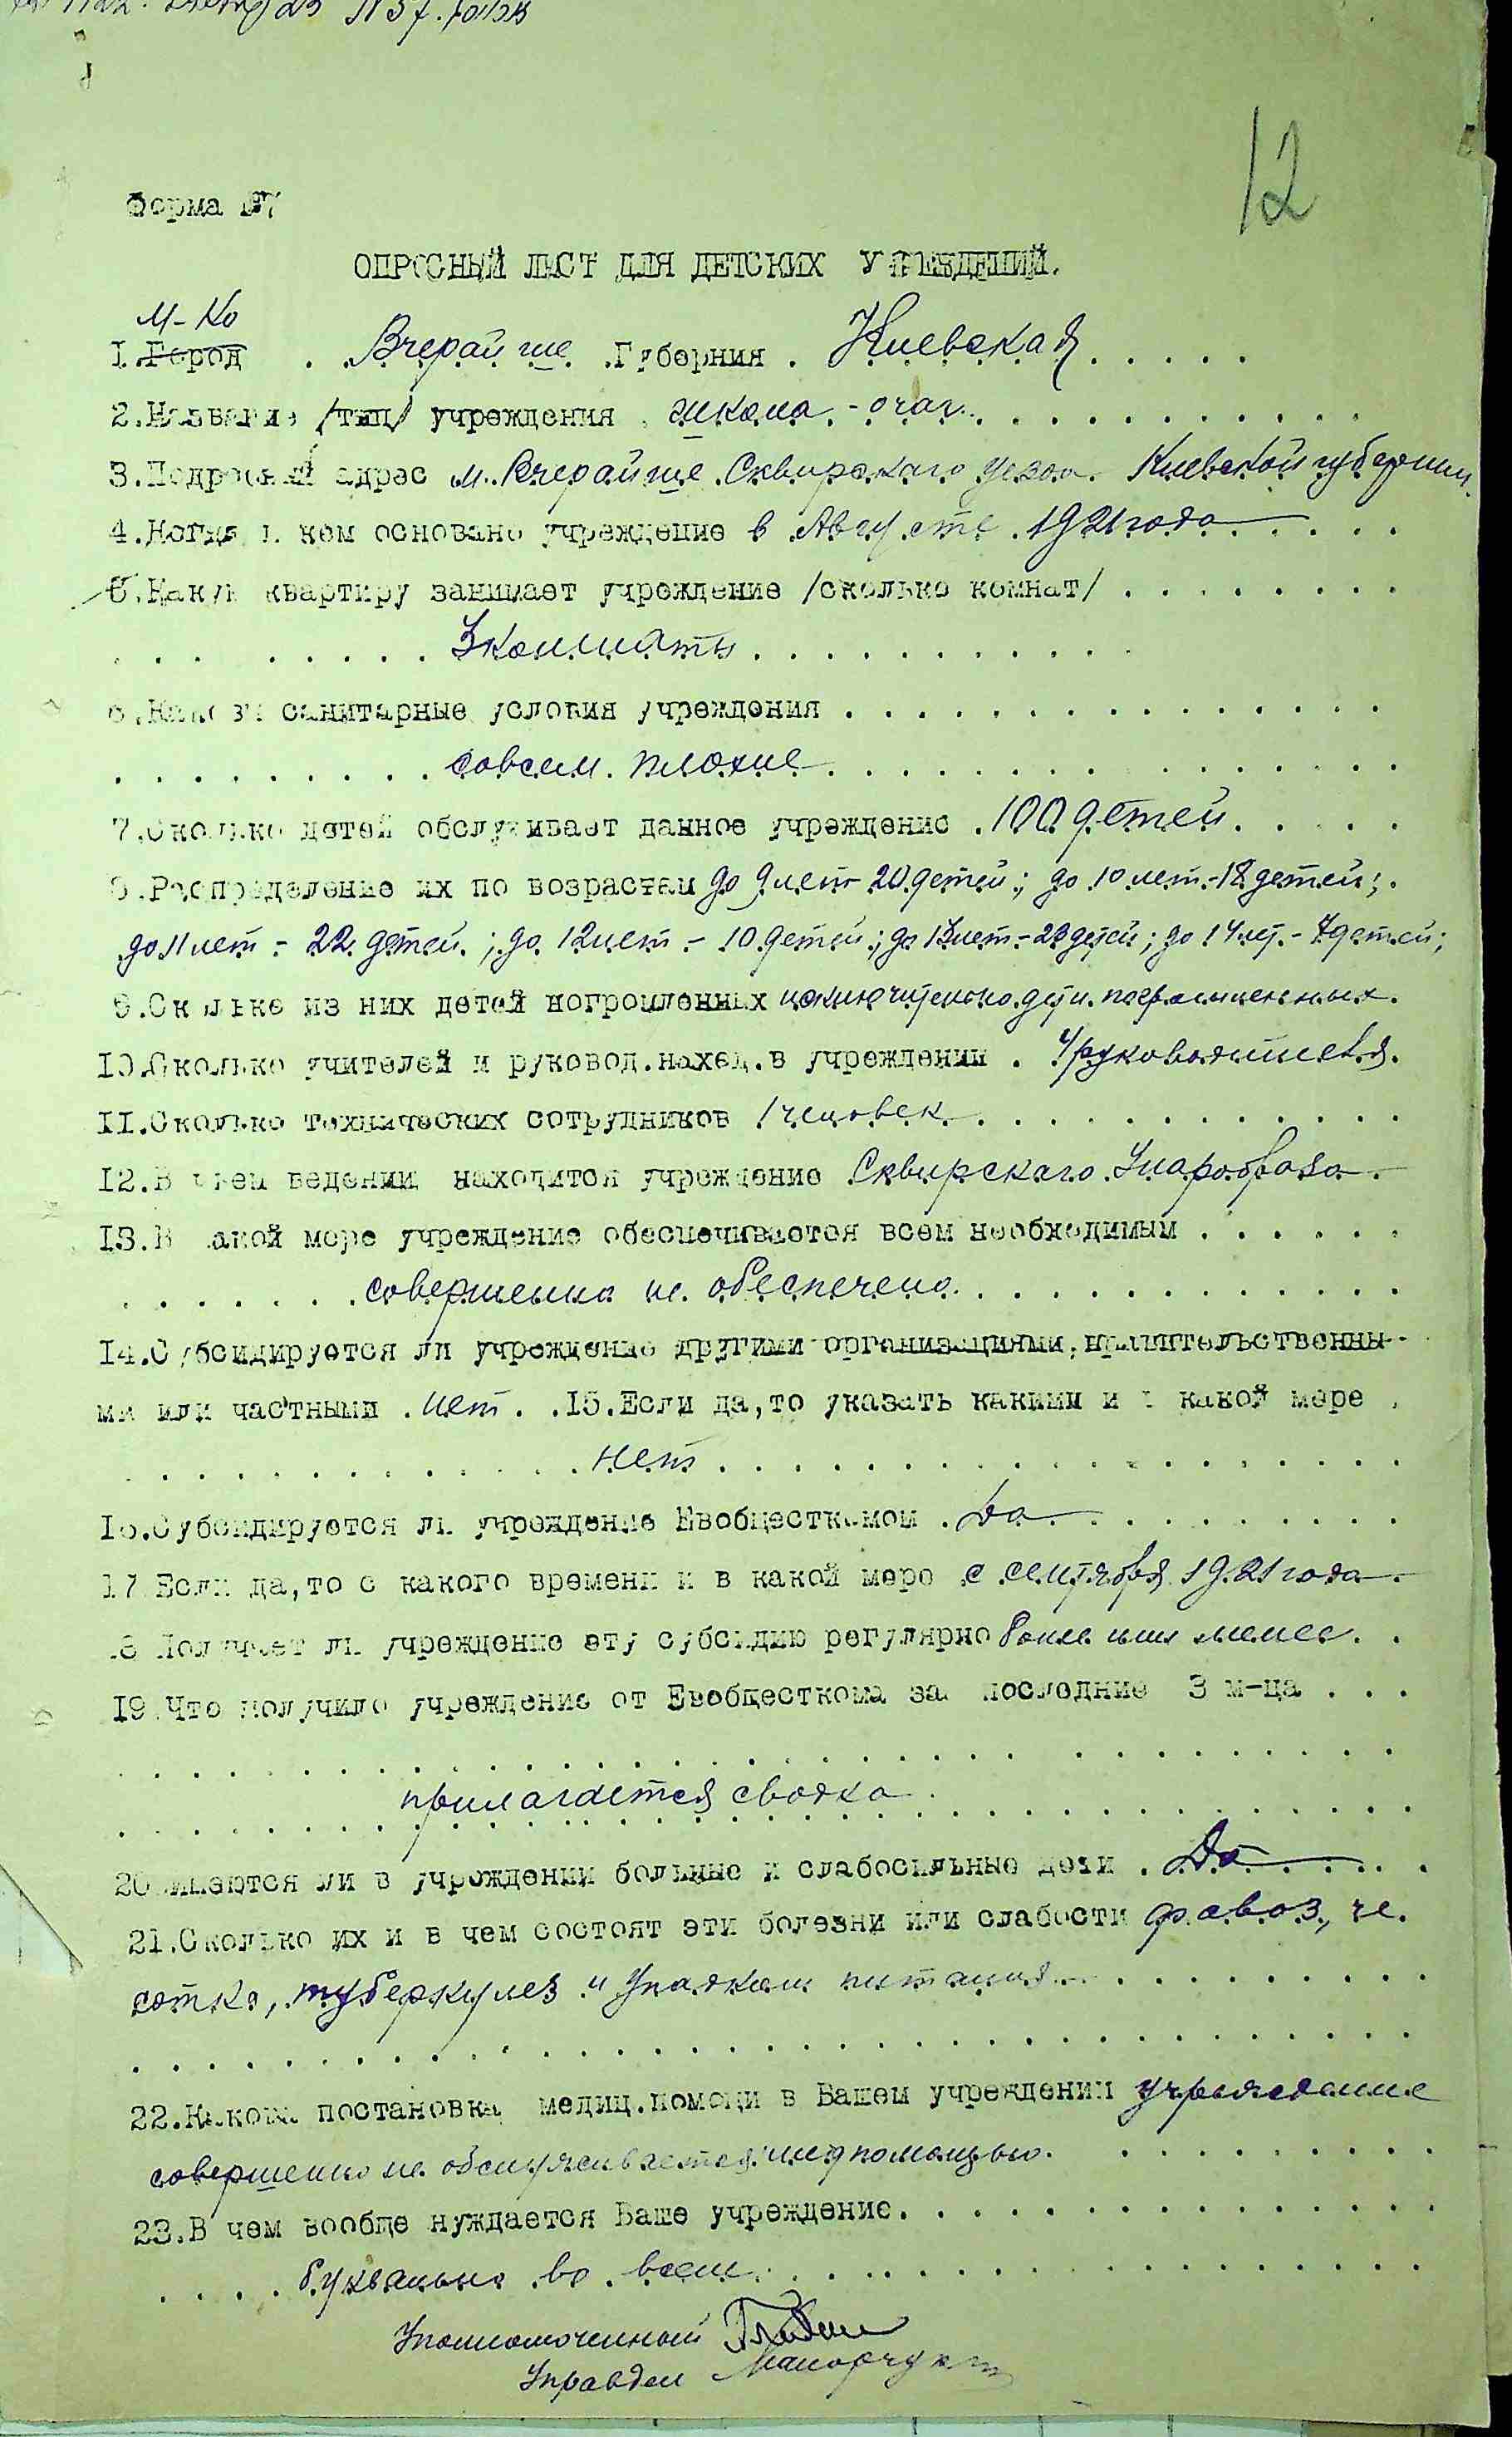 12
Форма №7
ОПРОСНЫЙ ЛИСТ ДЛЯ ДЕТСКИХ УЧРЕЖДЕНИЙ.
м-ко
1.Город . Вчерайше .Губерния . Киевская . . . . .
2.Название /тип/ учреждения школа-очаг. . . . . . . . . . .
3.Подробный адрес м. Вчерайше Сквирскаго уезда Киевской губернии.
4.Когда и кем основано учреждение в Августе 1921 года . . . .
5.Какую квартиру занимает учреждение /сколько комнат/ . . . . . . . .
. . . . . . . . 3 комнаты . . . . . . . . . . .
6.Каковы санитарные условия учреждения . . . . . . . . . . . . . . .
. . . . . . . . . совсем плохие . . . . . . . . . . . . . . .
7.Сколько детей обслуживает данное учреждение . 100 детей . . . .
8.Распределение их по возрастам до 9 лет - 20 детей; до 10 лет - 18 детей;
до 11 лет - 22 детей; до 12 лет - 10 детей; до 13 лет - 23 детей; до 14 лет - 7 детей;
9.Сколько из них детей погромленных исключительно дети погромленных.
10.Сколько учителей и руковод.наход.в учреждении . 4 руководителя.
11.Сколько технических сотрудников 1 человек . . . . . . . . . . . .
12.В чьем ведении находится учреждение Сквирскаго Унаробраза.
13.В какой мере учреждение обеспечивается всем необходимым . . . . . .
. . . . . . . совершенно не обеспечено . . . . . . . . . . . . .
14.Субсидируется ли учреждение другими организациями, правительственны-
ми или частными . нет . .15.Если да,то указать какими и в какой мере .
. . . . . . . . . . . . нет . . . . . . . . . . . . . . . . . .
16.Субсидируется ли учреждение Евобщесткомом . Да . . . . . . . . . .
17.Если да,то с какого времени и в какой мере с сентября 1921 года.
18.Получает ли учреждение эту субсидию регулярно более или менее . .
19.Что получило учреждение от Евобщесткома за последние 3 м-ца . . .
. . . . . . . . . . . . . . . . . . . . . . . . . . . . .
прилагается сводка
20.Имеются ли в учреждении больные и слабосильные дети . Да . . . .
21.Сколько их и в чем состоят эти болезни или слабости фавоз, че-
сотка, туберкулез и упадком питания . . . . . . . . . .
. . . . . . . . . . . . . . . . . . . . . . . . . . . . .
22.Какова постановка медиц.помощи в Вашем учреждении учреждение
совершенно не обслуживается медпомощью . . . . . . . . .
23.В чем вообще нуждается Ваше учреждение. . . . . . . . . . . . . . .
. . . . буквально во всем . . . . . . . . . . . . . . . . .
Уполномоченный
Управдел